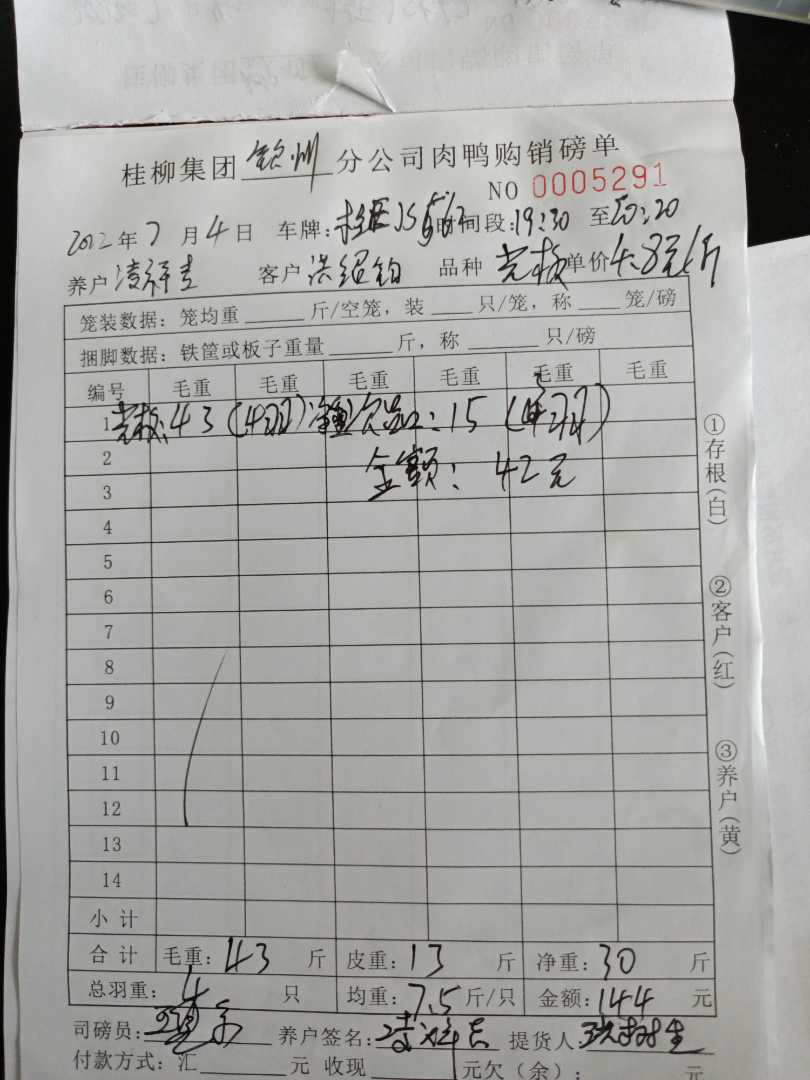 桂柳集团钦州分公司肉鸭购销磅单
NO 0005291
2022年7月4日 车牌: 时间段:19:30 至20:20
养户凌祥吉 客户洪绍铂 品种 光板 单价4.8元/斤
笼装数据: 笼均重 斤/空笼, 装 只/笼, 称 笼/磅
捆脚数据: 铁筐或板子重量 斤, 称 只/磅
编号 毛重 毛重 毛重 毛重 毛重 毛重
1 光板:43(4羽) 次品:15
2
3 金额: 42元
4
5
6
7
8
9
10
11
12
13
14
小计
合计 毛重:43 斤 皮重:13 斤 净重:30 斤
总羽重:4 只 均重:7.5斤/只 金额:144 元
司磅员: 养户签名:凌祥吉 提货人:
付款方式: 汇 元 收现 元欠(余): 元
①存根(白)
②客户(红)
③养户(黄)